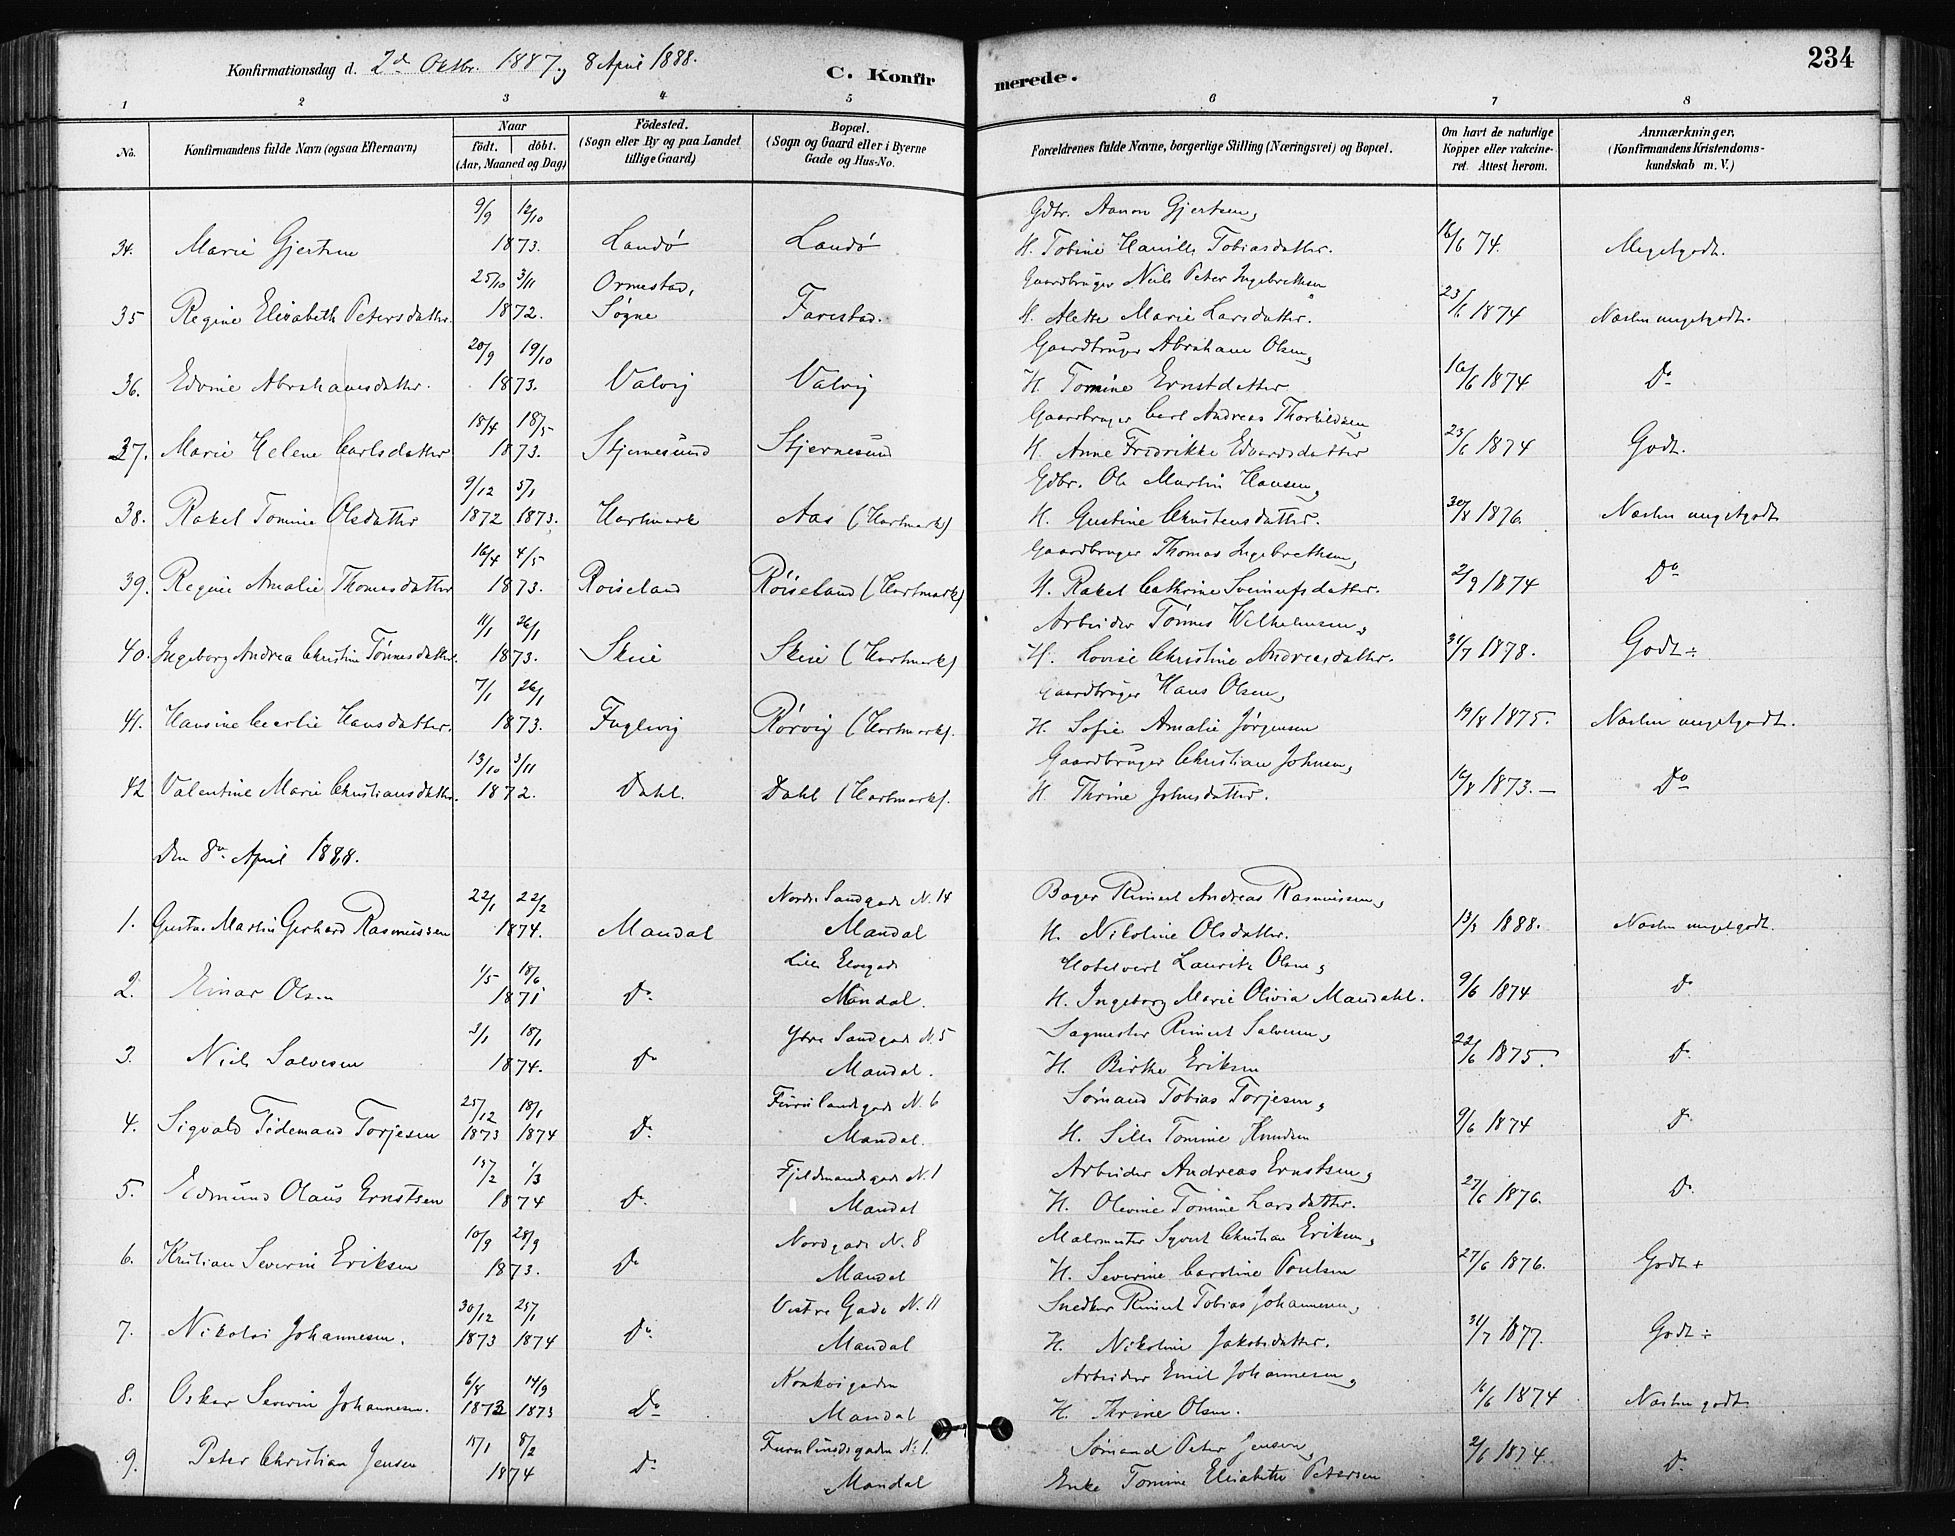 Konfirmationsdag d. 2d Oktbr. 1887 og 8 April 1888.
C. Konfirmerede.
234
1 2 3 4 5 6 7 8
No. Konfirmandens fulde Navn (ogsaa Efternavn) Naar födt. döbt. (Aar, Maaned og Dag) Födested. (Sogn eller By og paa Landet tillige Gaard) Bopæl. (Sogn og Gaard eller i Byerne Gade og Hus-No. Forældrenes fulde Navne, borgerlige Stilling (Næringsvei) og Bopæl. Om havt de naturlige Kopper eller vakcineret. Attest herom. Anmærkninger, (Konfirmandens Kristendomskundskab m. V.)
9/9 12/10 Gdbr. Aanon Gjertsen,
34. Marie Gjertsen 1873. Landö Landö H. Tobine Tobiasdatter. 16/6 74. Megetgodt.
25/10 3/11 Ormestad, Gaardbruger Niels Peter Ingebrethsen
35 Regine Elisabeth Petersdatter. 1872. Søgne Farestad. H. Alette Marie Larsdatter. 1874 Næsten megetgodt.
20/9 19/10 Gaardbruger Abraham Olsen,
36. Edvine Abrahamsdatter. 1873. Valvig Valvig H. Tomine Ernstdatter 16/6 1874 Do
18/4 18/5 Gaardbruger Carl Andreas Thorkildsen,
37. Marie Helene Carlsdatter 1873. Stjernesund Stjernesund H. Anne Fredrikke Edvardsdatter 23/6 1874 Godt.
9/12 5/1 Gdbr. Ole Martin Hansen,
38. Rakel Tomine Olsdatter 1872 1873. Hartmark Aas (Hartmark) H. Gustine Christensdatter. 30/8 1876. Næsten megetgodt
16/4 4/5 Gaardbruger Thomas Ingebrethsen,
39. Regine Amalie Thomasdatter 1873. Röiseland Röiseland (Hartmark) H. Rakel Cathrine Sveinufsdatter. 2/9 1874 Do
11/1 26/1 Arbeider Tönnes Wilhelmsen,
40. Ingeborg Andrea Christine Tönnesdatter. 1873. Skeie Skeie (Hartmark) H. Lovise Christine Andreasdatter. 31/7 1878. Godt ÷
7/1 26/1 Gaardbruger Hans Olsen,
41. Hansine Hansdatter. 1873. Fuglevig Rörvig (Hartmark). H. Sofie Amalie Jørgensen 19/8 1875. Næsten megetgodt.
13/10 3/11 Gaardbruger Christian Johnsen,
42 Valentine Marie Christiansdatter. 1872. Dahl. Dahl (Hartmark). H. Thrine Johnsdatter. 16/8 1873. — Do
Den 8de April 1888.
22/1 22/2 Nordre Sandgade N. 14 Bager Reinert Andreas Rasmussen,
1. Gustav Martin Gerhard Rasmussen 1874. Mandal Mandal H. Nikoline Olsdatter. 13/3 1888. Næsten megetgodt.
1/5 18/6 Lille Elvegade Hotelvert Lauritz Olsen,
2. Einar Olsen 1871 Do Mandal. H. Ingeborg Marie Olivia Mandahl. 9/6 1874 Do
3/1 18/1 Ytre Sandgade N. 5 Sagmester Reinert Salvesen,
3. Niels Salvesen 1874. Do Mandal. H. Birthe Eriksen 22/6 1875. Do
25/12 18/1 Furulundsgade N. 6 Sømand Tobias Torjesen,
4. Sigvald Tidemand Torjesen 1873 1874 Do Mandal. H. Sille Tomine Knudsen 9/6 1874 Do
15/2 1/3 Fjeldmandsgade N. 1 Arbeider Andreas Ernstsen,
5. Edmund Olaus Ernstsen 1874 Do Mandal H. Olevine Tomine Larsdatter. 27/6 1876. Do
10/9 28/9 Nordgade N. 8 Malermester Syvert Christian Eriksen,
6. Kristian Severin Eriksen 1873. Do Mandal H. Severine Caroline Poulsen 27/6 1876. Godt +
30/12 25/1 Vestre Gade N. 11 Snedker Reinert Tobias Johannesen,
7. Nikolai Johannesen. 1873 1874 Do Mandal H. Nikoline Jakobsdatter. 31/7 1877. Godt ÷
6/8 14/9 Arbeider Emil Johannesen,
8. Oskar Severin Johannesen. 1873 1873 Do Mandal H. Thrine Olsen. 16/6 1874 Næsten godt
15/1 8/2 Furulundsgaden N. 1. Sømand Peter Jensen,
9. Peter Christian Jensen 1874 Do Mandal Enke Tomine Elisabeth Petersen 2/6 1874. Do